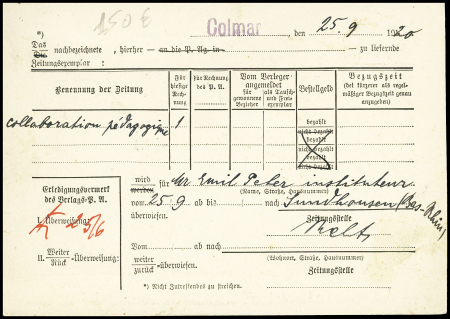 150 €
Colmar, den 25. 9 1920
*)
Das
Die nachbezeichnete, hierher — an die P. Ag. in — zu liefernde
Zeitungsexemplar :
Benennung der Zeitung
Für hiesige Rechnung
Für Rechnung des P. A.
Vom Verleger angemeldet
für gewonnene Bezieher
als Tausch- und Freiexemplar
Bestellgeld
Bezugszeit
(bei kürzerer als regelmäßiger Bezugszeit genau anzugeben)
collaboration pédagogique 1
bezahlt
nicht bezahlt
bezahlt
nicht bezahlt
bezahlt
nicht bezahlt
Erledigungsvermerk
des Verlags-P. A.
I. Überweisung:
25/6
II. Weiter
Rück -Überweisung:
wird
werden für Mr Emil Peter instituteur
(Name, Straße, Hausnummer)
vom 25 9 ab bis nach Sundhausen (Bas-Rhin)
Zeitungsstelle
Vom ab nach
weiter
zurück -überwiesen.
(Wohnort, Straße, Hausnummer)
Zeitungsstelle
*) Nicht Zutreffendes zu streichen.